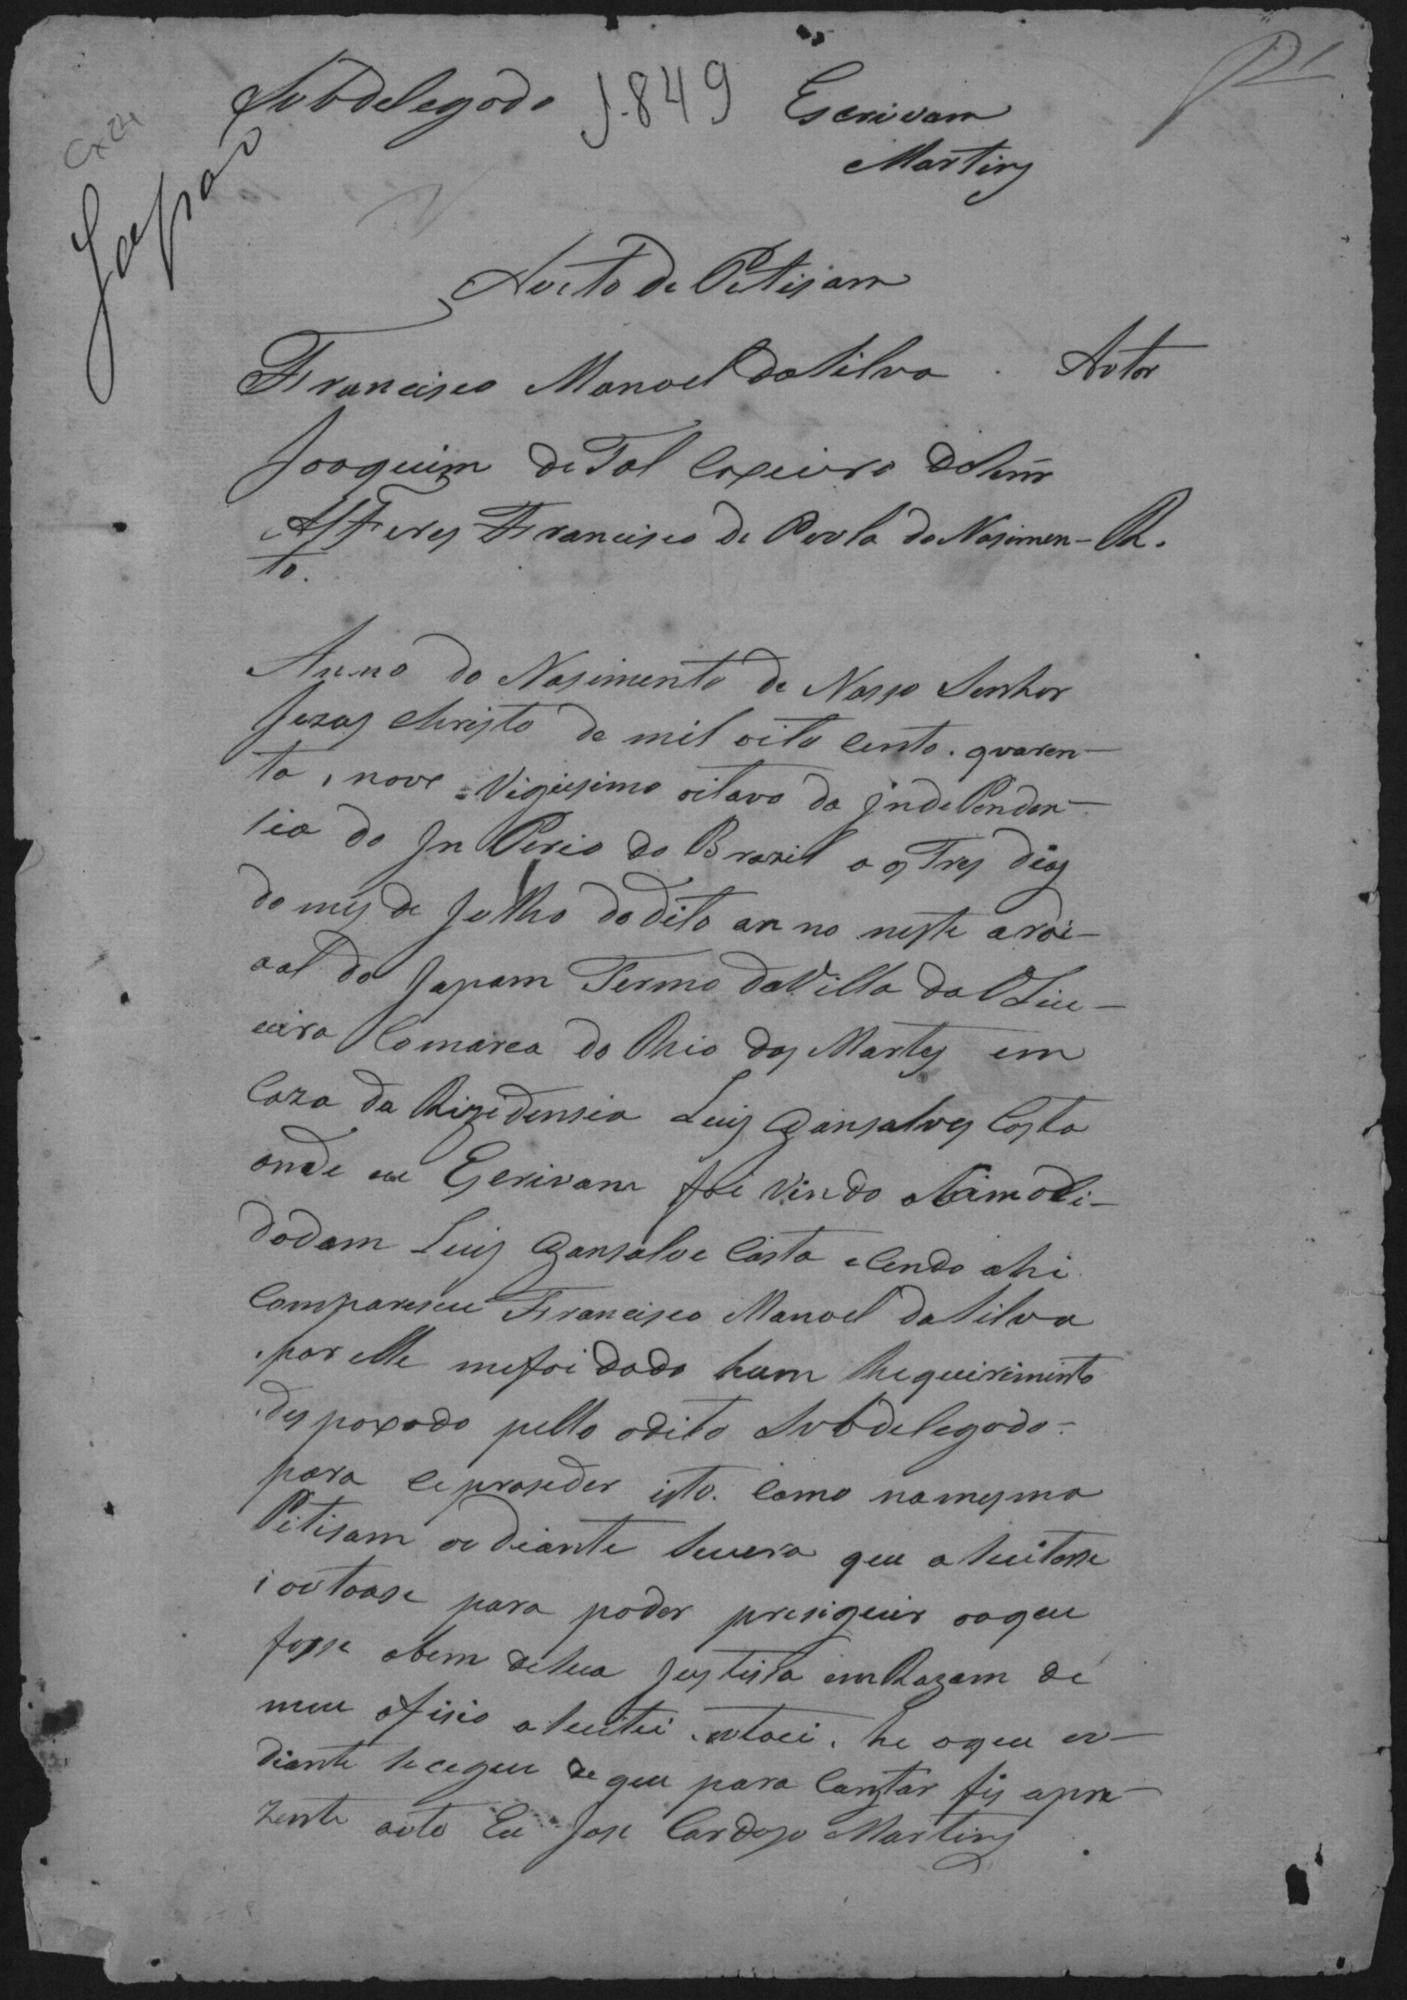 Subdelegado 1849 Escrivam
Martins
Cx 24
Japão
Aucto de Petisam
Francisco Manoel da Silva. Autor
Joaquim de Tal Caxeiro do Senr
Alferes Francisco de Paula do Nasimen- R.
to.
Anno do Nasimento de Nosso Senhor
Jezus Christo de mil oito cento. quaren-
ta, nove Vigissimo oitavo da jndePenden-
sia do JnPerio do Brazil aos Tres dias
do mes de Julho do dito anno neste arai-
al do Japam Termo da Villa da Oliv-
eira Comarca do Rio das Martes em
Caza da Rezedensia Luis Gonsalves Costa
onde eu Escrivam foi vindo
Luis Gonsalve Costa e cendo ahi
Compareseu Francisco Manoel da Silva
, por elle me foi dado hum Requirimento
despaxado pello o dito Subdelegado-
para ce proseder isto. Como na mesma
Petisam ao diante se vera que aseitasse
i autoase para poder presiguir o que
fosse abem de sua justisa em Razam de
meu ofisio aseitei. autoei. he o que ao
diante se cegue de que para Constar fis apre-
zente auto Eu Jose Cardoso Martins